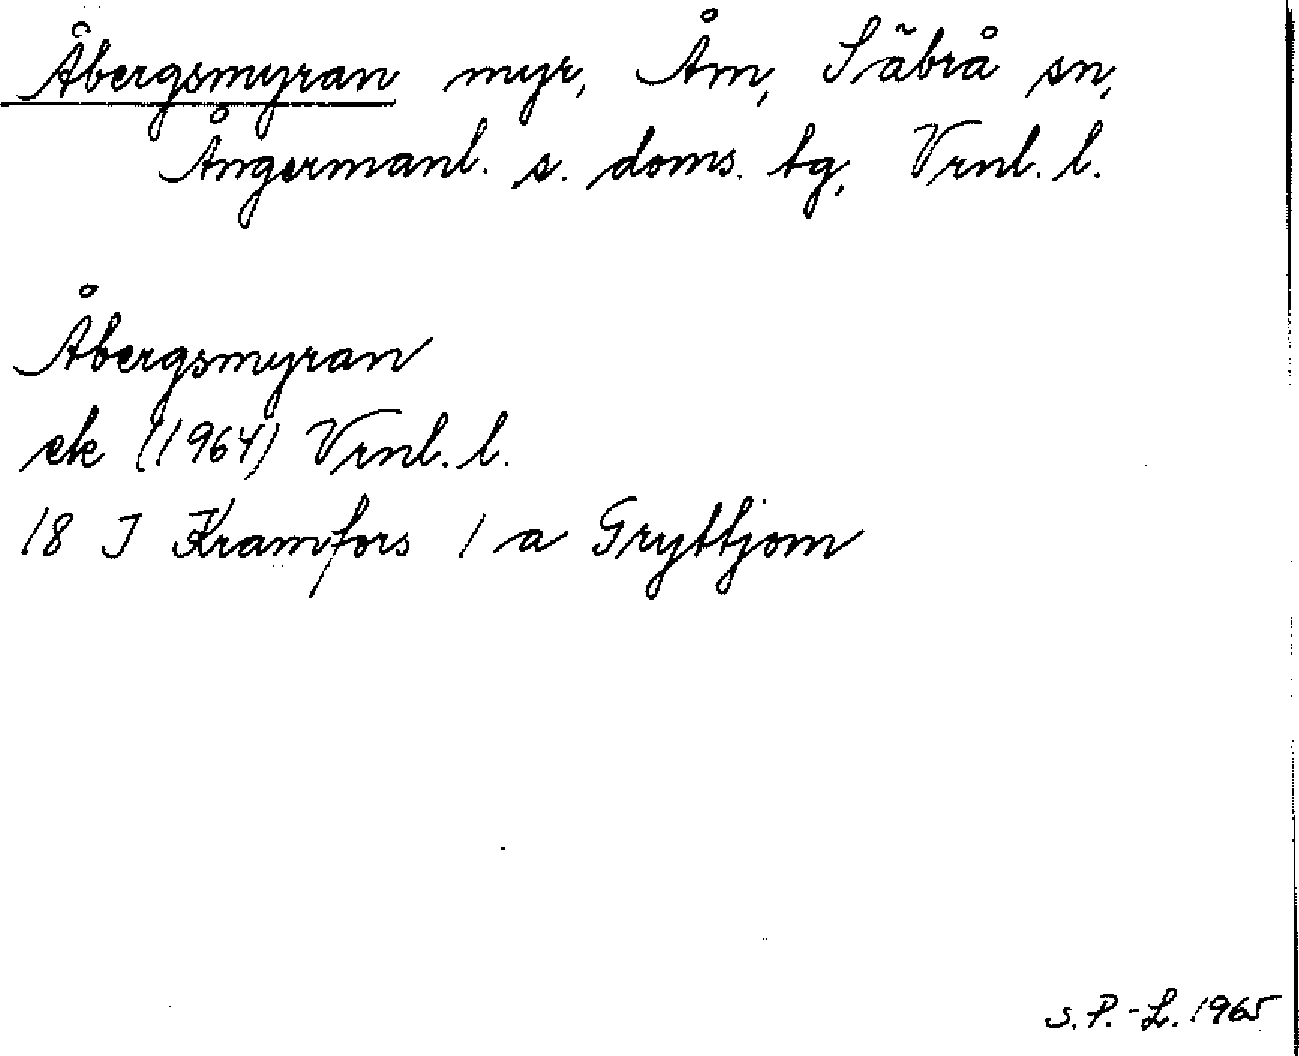 Åbergsmyran myr, Åm, Säbrå sn,
Ångermanl. s. doms. tg, Vrnl. l.
Åbergsmyran
ek (1964) Vrnl. l.
18 I Kramfors 1 a Gryttjom
S.P.-L. 1965